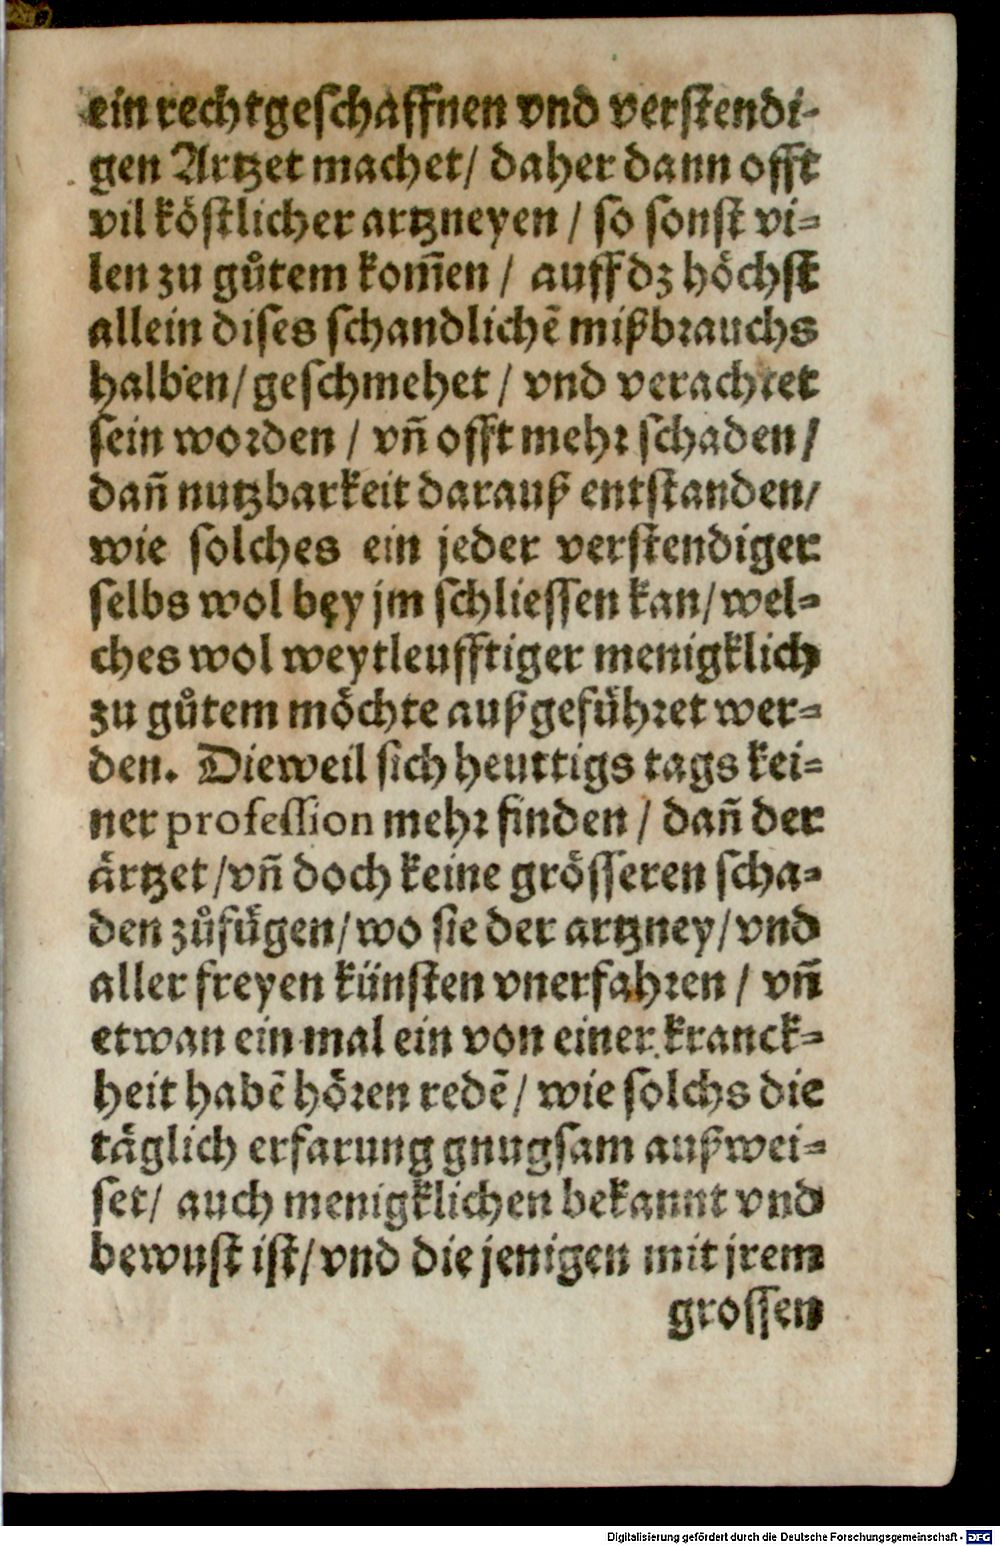 ein rechtgeschaffnen vnd verstendi-
gen Artzet machet/ daher dann offt
vil köstlicher artzneyen / so sonst vi-
len zu gůtem kom̄en / auff dz höchst
allein dises schandlichē mißbrauchs
halben/ geschmehet / vnd verachtet
sein worden / vn̄ offt mehr schaden/
dan̄ nutzbarkeit darauß entstanden/
wie solches ein jeder verstendiger
selbs wol bey jm schliessen kan/ wel-
ches wol weytleufftiger menigklich
zu gůtem möchte außgeführet wer-
den. Dieweil sich heuttigs tags kei-
ner profession mehr finden / dan̄ der
ärtzet /vn̄ doch keine grösseren scha-
den zůfügen/ wo sie der artzney/ vnd
aller freyen künsten vnerfahren / vn̄
etwan ein mal ein von einer kranck-
heit habē hören redē/ wie solchs die
täglich erfarung gnugsam außwei-
set/ auch menigklichen bekannt vnd
bewust ist/ vnd die jenigen mit jrem
grossen
Digitalisierung gefördert durch die Deutsche Forschungsgemeinschaft - DFG